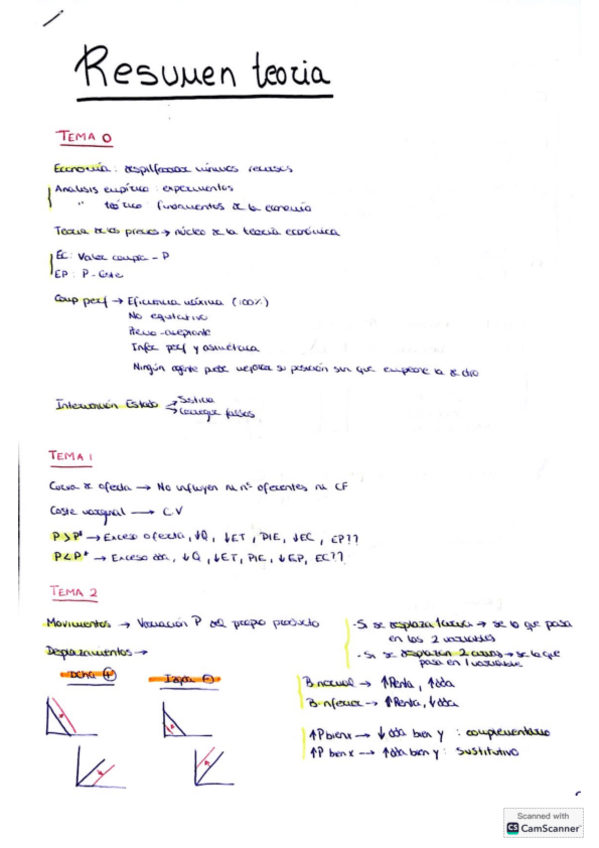 Resumen teoria
TEMA 0
Economía: despilfarrar mínimos recursos
Analisis empírico: experimentos
" teórico: fundamentos de la economía
Teoria de los precios → núcleo de la teoria económica
EC: Valor compra - P
EP: P - Coste
Comp perf → Eficiencia máxima (100%)
No equitativo
Precio-aceptante
Infor perf y asimétrica
Ningún agente puede mejorar su posición sin que empeore la de otro
Intervención Estado → Justicia
→ Corregir fallos
TEMA 1
Curva de oferta → No influyen ni nº oferentes ni CF
Coste marginal → C.V
P > P* → Exceso oferta, ↓Q, ↓ET, PIE, ↓EC, EP??
P < P* → Exceso dda, ↓Q, ↓ET, PIE, ↓EP, EC??
TEMA 2
Movimientos → Variación P del propio producto
Deplazamientos →
Dcha +
Izqda -
- Si se desplaza 1 curva → se lo que pasa
en las 2 variables
- Si se desplazan 2 curvas → se lo que
pasa en 1 variable
B normal → ↑Renta, ↑dda
B inferior → ↑Renta, ↓dda
↑P bien x → ↓dda bien y : complementario
↑P bien x → ↑dda bien y : sustitutivo
Scanned with
CS CamScanner